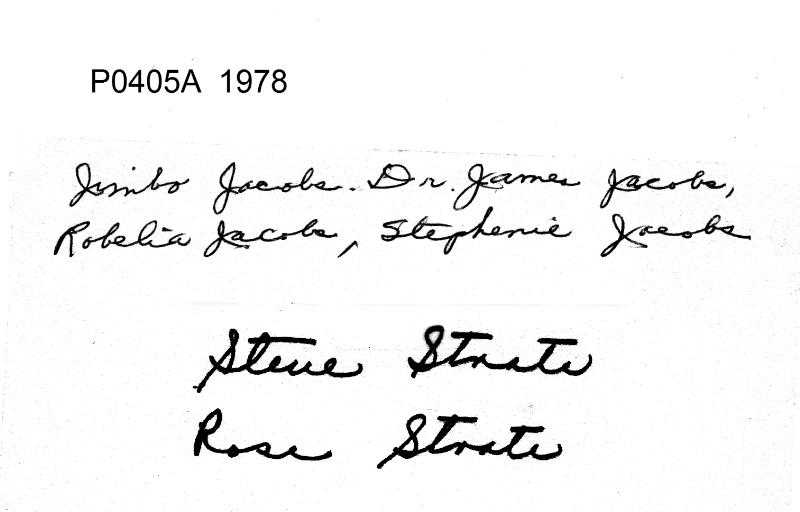 P0405A 1978
Jimbo Jacobs. Dr. James Jacobs,
Robelia Jacobs, Stephenie Jacobs
Steve Strate
Rose Strate